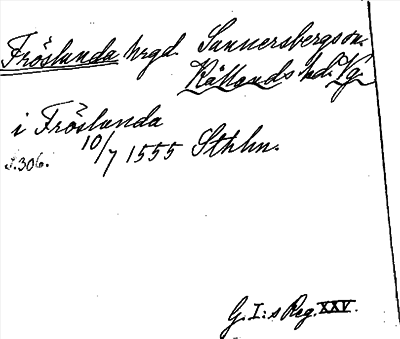 Fröslanda hrgd. Sunnersbergs sn.
Kållands hd. Vg.
i Fröslanda
s.306. 10/7 1555 Sthlm.
G. I:s Reg. XXV.